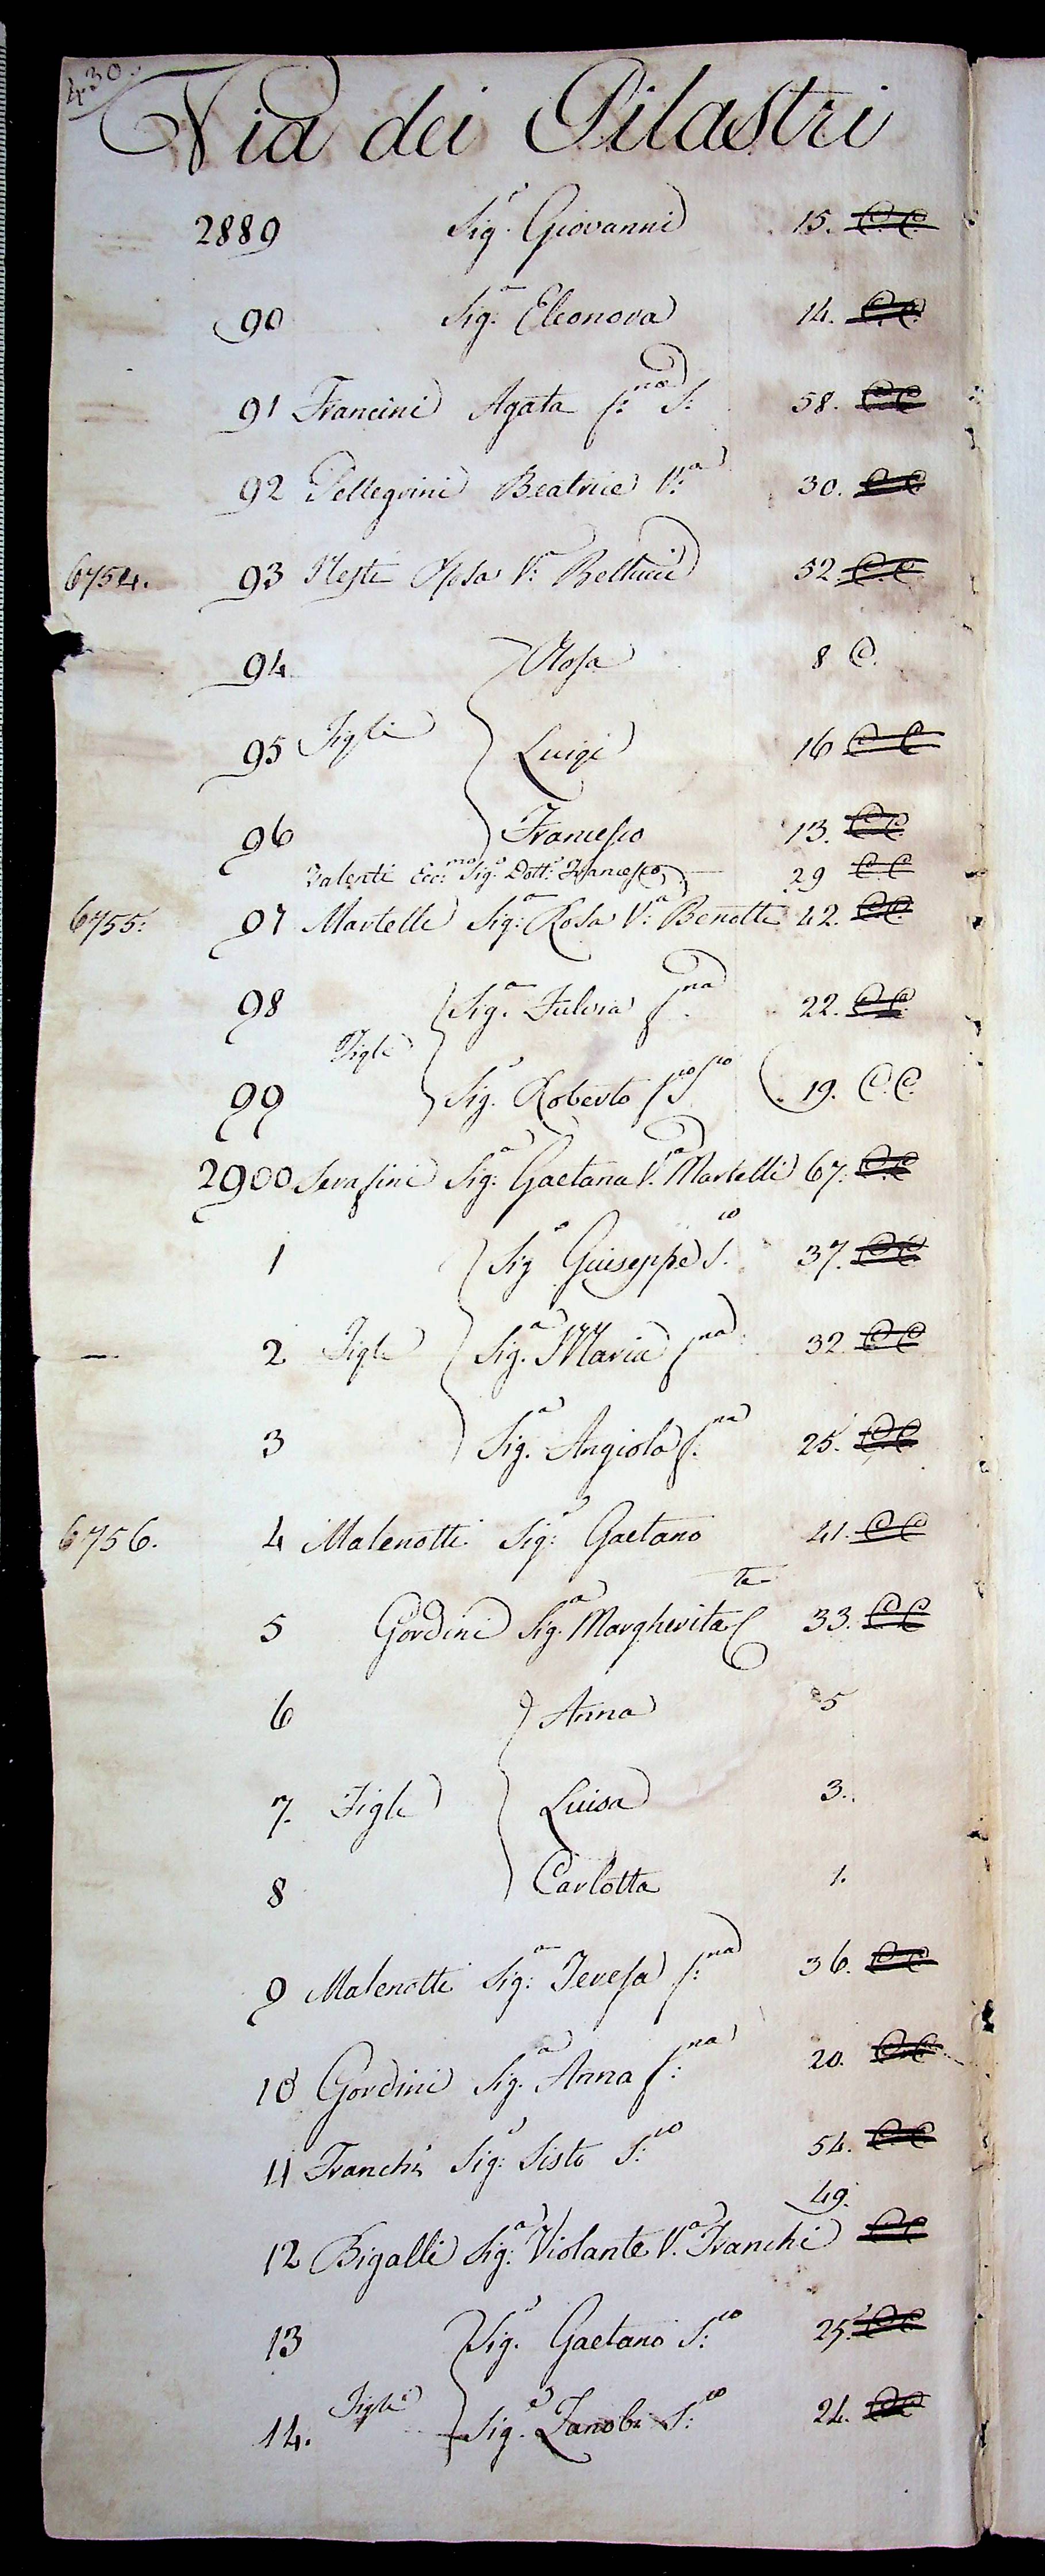 430.
Via dei Pilastri
2889 Sig.r Giovanni 15. C.C.
90 Sig.a Eleonora 14. C.C.
91 Francini Agata f:na S: 58. C.C.
92 Pellegrini Beatrice V:a 30. C.C.
6754. 93 Nesti Rosa V:a Bellucci 52. C.C.
94 Rosa 8 C.
95 Figli Luigi 16 C C
96 Francesco 13. C.C.
Valenti Ecc:mo Sig.r Dott.r Francesco 29 C.C
6755. 97 Martelli Sig:a Rosa V:a Benotti 42. C.C.
98 Sig.a Fulvia f.na 22. C.C.
Figli
99 Sig.r Roberto S 19. C.C.
2900 Serafini Sig:a Gaetana V.a Martelli 67. C.C
1 Sig.r Giuseppe S.co 37. C.C
2 Figli Sig.a Maria f.na 32. C.C
3 Sig.a Angiola f.na 25. C.C
6756. 4 Malenotti Sig.r Gaetano 41. C C
5 Gordini Sig.a Margherita C.te 33. C C
6 Anna 5
7. Figli Luisa 3.
8 Carlotta 1.
9 Malenotti Sig:a Teresa f:na 36. C.C
10 Gordini Sig.a Anna f:na 20. C.C
11 Franchi Sig:r Sisto S:co 54. C.C
49.
12 Bigalli Sig:a Violante V.a Franchi C.C
13 Sig.r Gaetano S:co 25. C.C
Figli
14. Sig.r Zanobi S:co 24. C.C